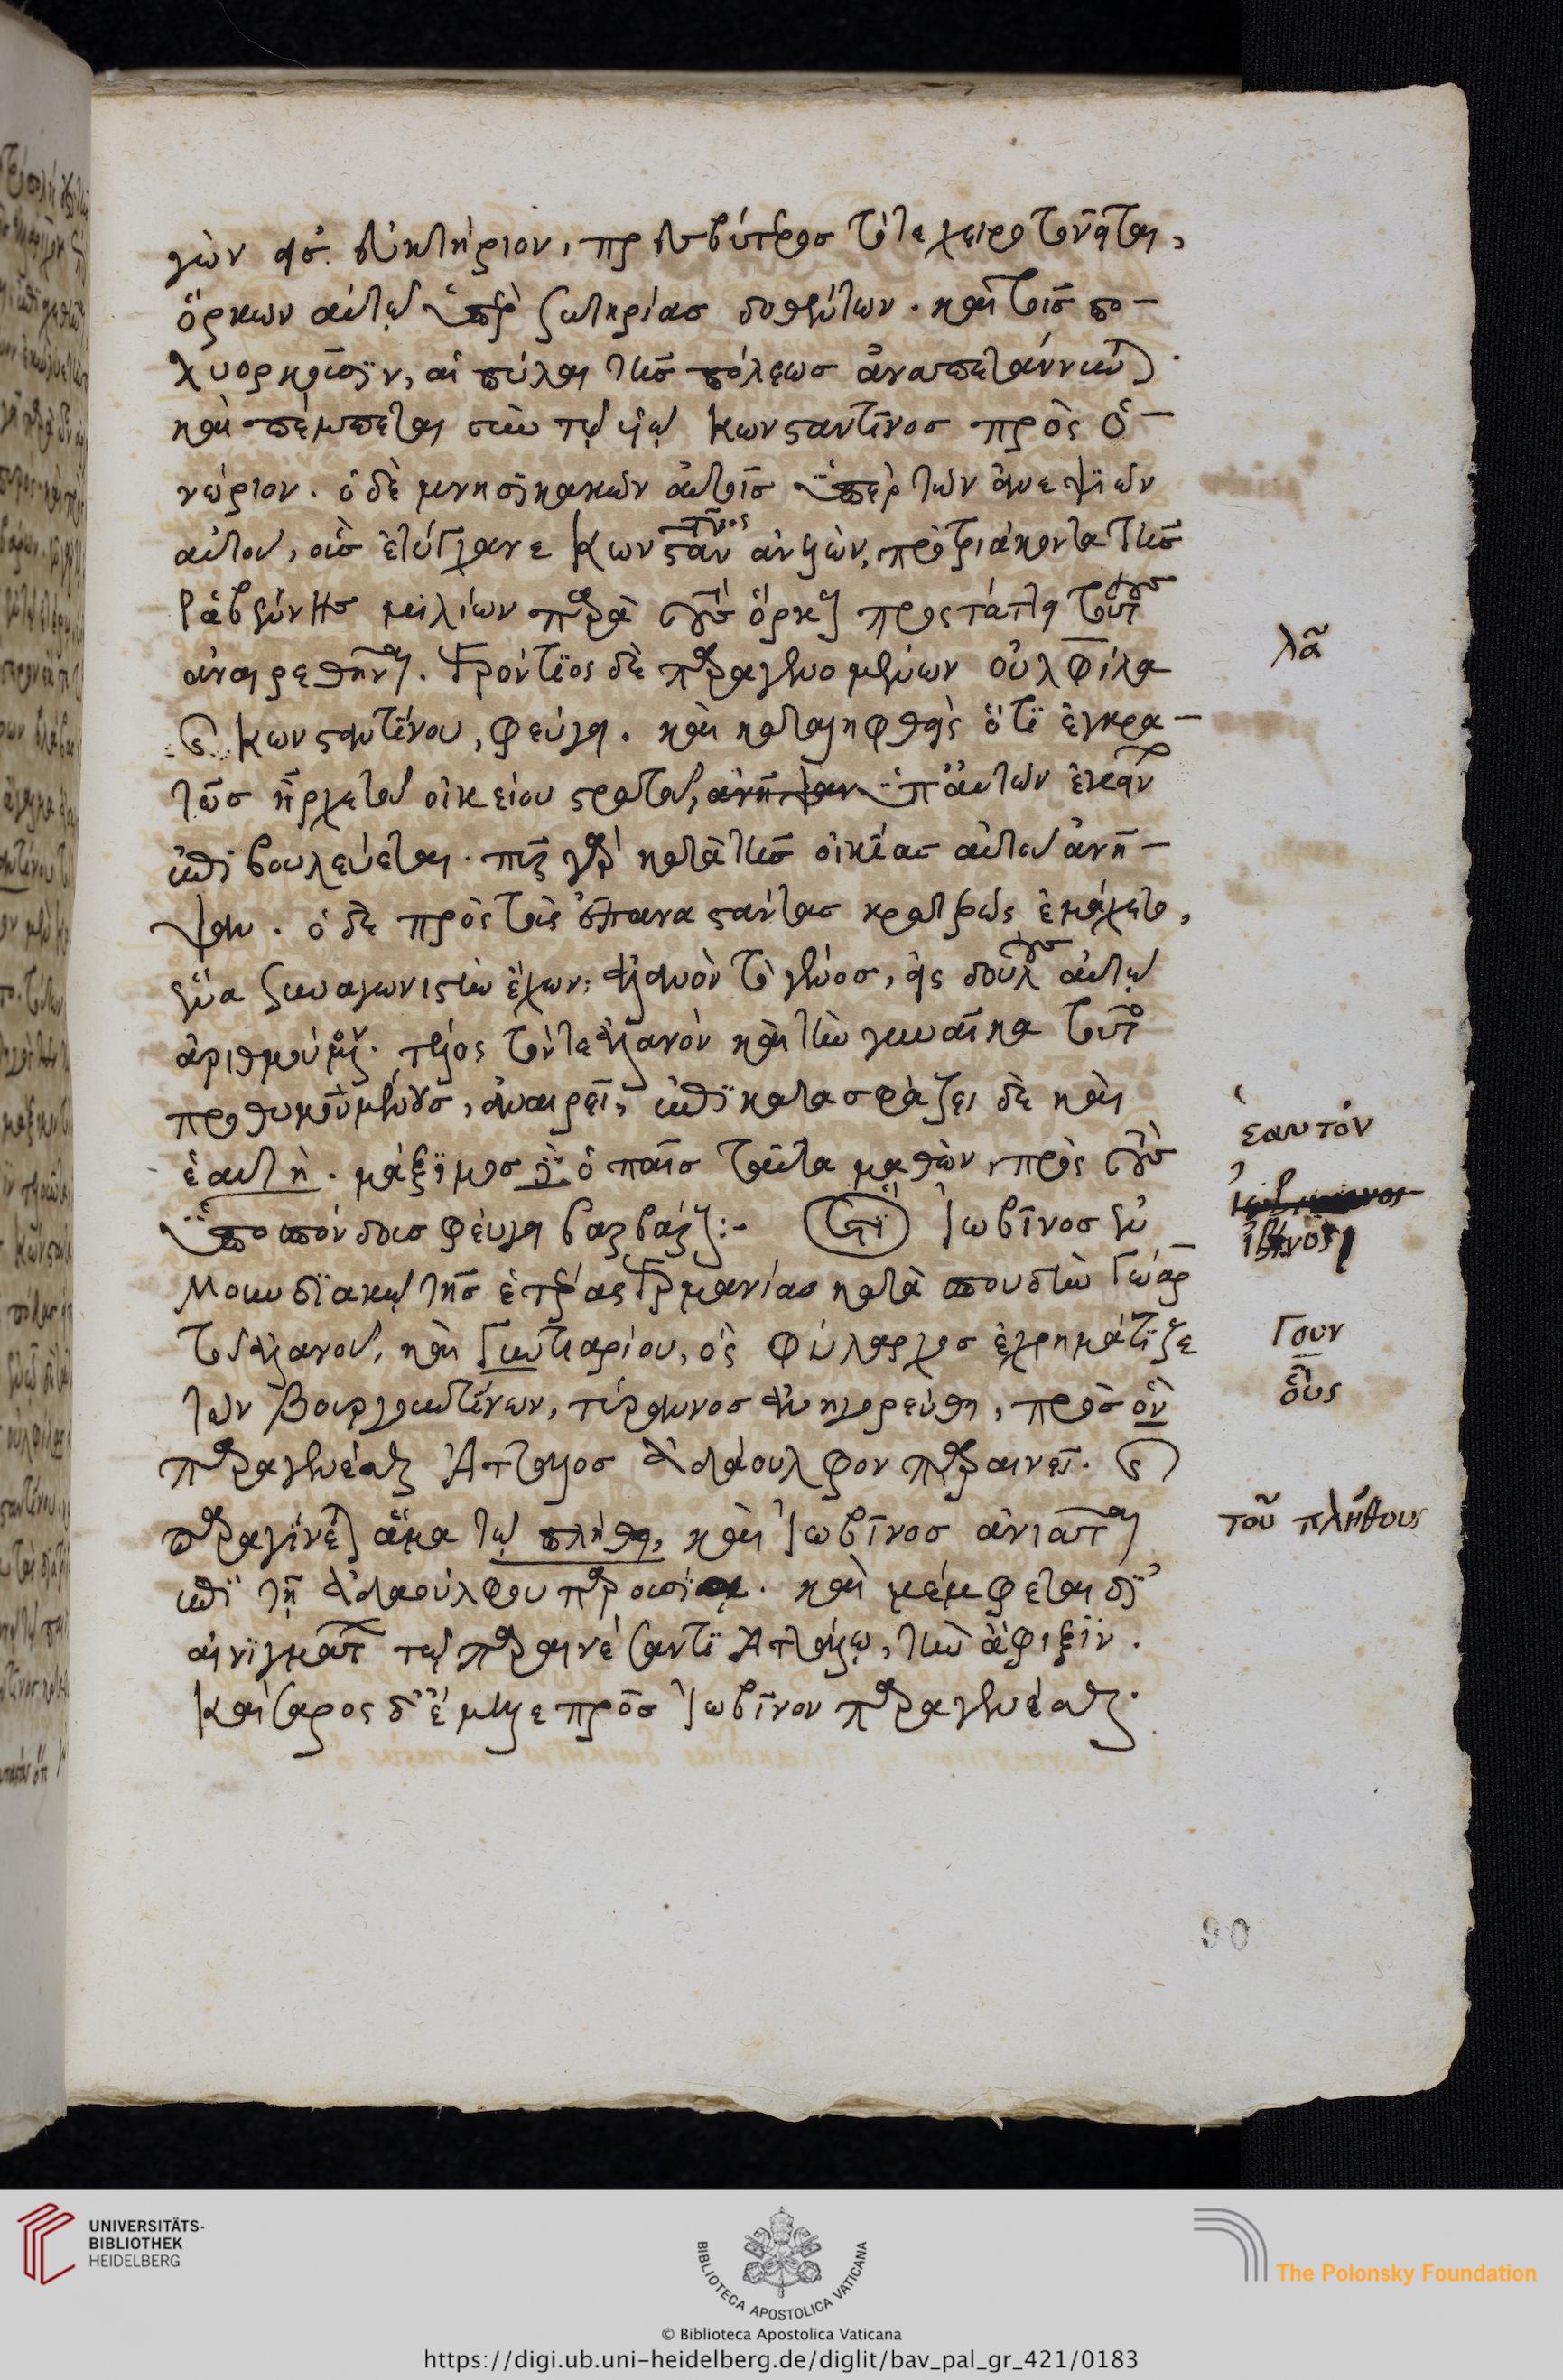 γὼν εἰς εὐκτήριον, πρεσβύτερος τότε χειροτονεῖται,
ὅρκων αὐτῷ ὑπὲρ σωτηρίας δοθέντων. καὶ τοῖς πο-
λυορκοῦσιν, αἱ πύλαι τῆς πόλεως ἀναπετάννυνται.
καὶ πέμπεται σὺν τῷ υἱῷ Κωνσταντῖνος πρὸς Ὁ-
νώριον. ὁ δὲ μνησικακῶν αὐτοῖς ὑπὲρ τῶν ἀνεψιῶν
αὐτοῦ, οὓς ἐτύγχανε Κωνσταντῖνος ἀνελὼν, πρὸ τριάκοντα τῆς
Ῥαβέννης μιλίων παρὰ τοὺς ὅρκους προστάττει τούτους
ἀναιρεθῆναι. Ἐρόντιος δὲ παραγενομένων Οὐλφίλα
καὶ Κωνσταντίνου, φεύγει. καὶ καταληφθεὶς ὅτι ἐγκρα-
τῶς ἦρχε τοῦ οἰκείου στρατοῦ, ὑπ' αὐτῶν ἐκείνων
ἐπιβουλεύεται. πῦρ γὰρ κατὰ τῆς οἰκίας αὐτοῦ ἀνῆ-
ψαν. ὁ δὲ πρὸς τοὺς ἐπαναστάντας κρατερῶς ἐμάχετο,
ἕνα συναγωνιστὴν ἔχων Ἀλανὸν τὸ γένος, εἰς δούλους αὐτοῦ
ἀριθμούμενον. τέλος τόν τε Ἀλανὸν καὶ τὴν γυναῖκα τούτο
προθυμουμένους, ἀναιρεῖ, ἐπικατασφάζει δὲ καὶ
ἑαυτὴ. Μάξιμος δὲ ὁ παῖς ταῦτα μαθὼν, πρὸς τοὺς
ὑποσπόνδους φεύγει βαρβάρους:- Ὅτι Ἰωβῖνος ἐν
Μουνδιακῷ τῆς ἑτέρας Γερμανίας κατὰ σπουδὴν Γωὰρ
τοῦ Ἀλανοῦ, καὶ Γυντιαρίου, ὃς φύλαρχος ἐχρημάτιζε
τῶν Βουργουντιόνων, τύραννος ἀνηγορεύθη, πρὸς ὃν
παραγενέσθαι Ἄτταλος Ἀδάουλφον παραινεῖ. καὶ
παραγίνεται ἅμα τῷ πλήθει, καὶ Ἰωβῖνος ἀνιᾶται
ἐπὶ τῇ Ἀδαούλφου παρουσίᾳ. καὶ μέμφεται δι'
αἰνιγμάτων τῷ παραινέσαντι Ἀττάλῳ, τὴν ἄφιξιν.
καὶ Σάρος δ' ἔμελλε πρὸς Ἰωβῖνον παραγενέσθαι.
λᾶ
ἑαυτόν
Γουν
ὃὺς
τοῦ πλήθους
90
UNIVERSITÄTS-
BIBLIOTHEK
HEIDELBERG
BIBLIOTECA APOSTOLICA VATICANA
The Polonsky Foundation
© Biblioteca Apostolica Vaticana
https://digi.ub.uni-heidelberg.de/diglit/bav_pal_gr_421/0183